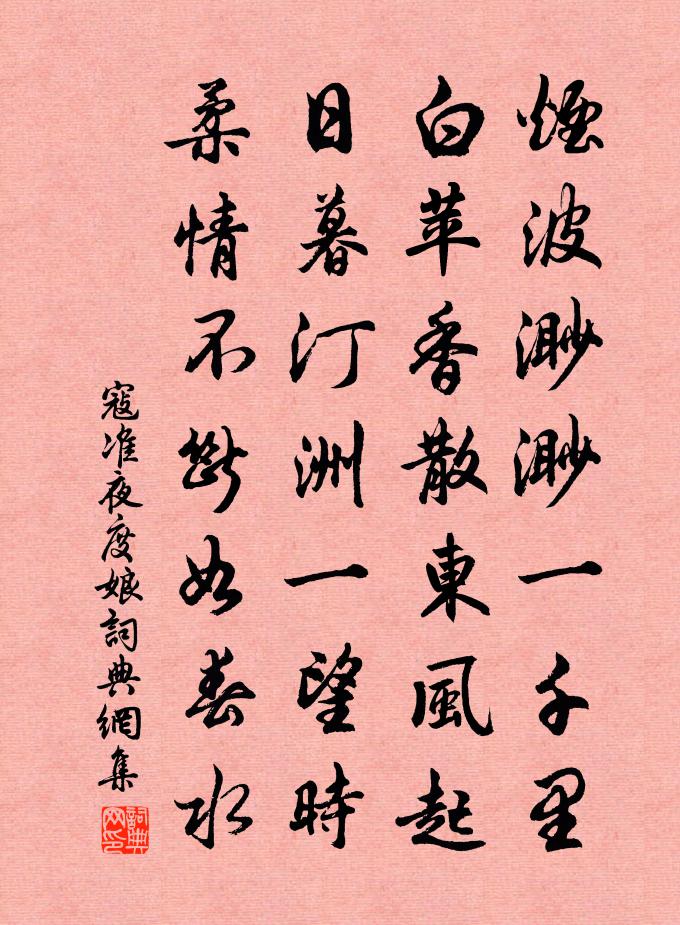 煙波渺渺一千里
白苹香散東風起
日暮汀洲一望時
柔情不斷如春水
寇准夜度娘詞典網集
詞典
网印